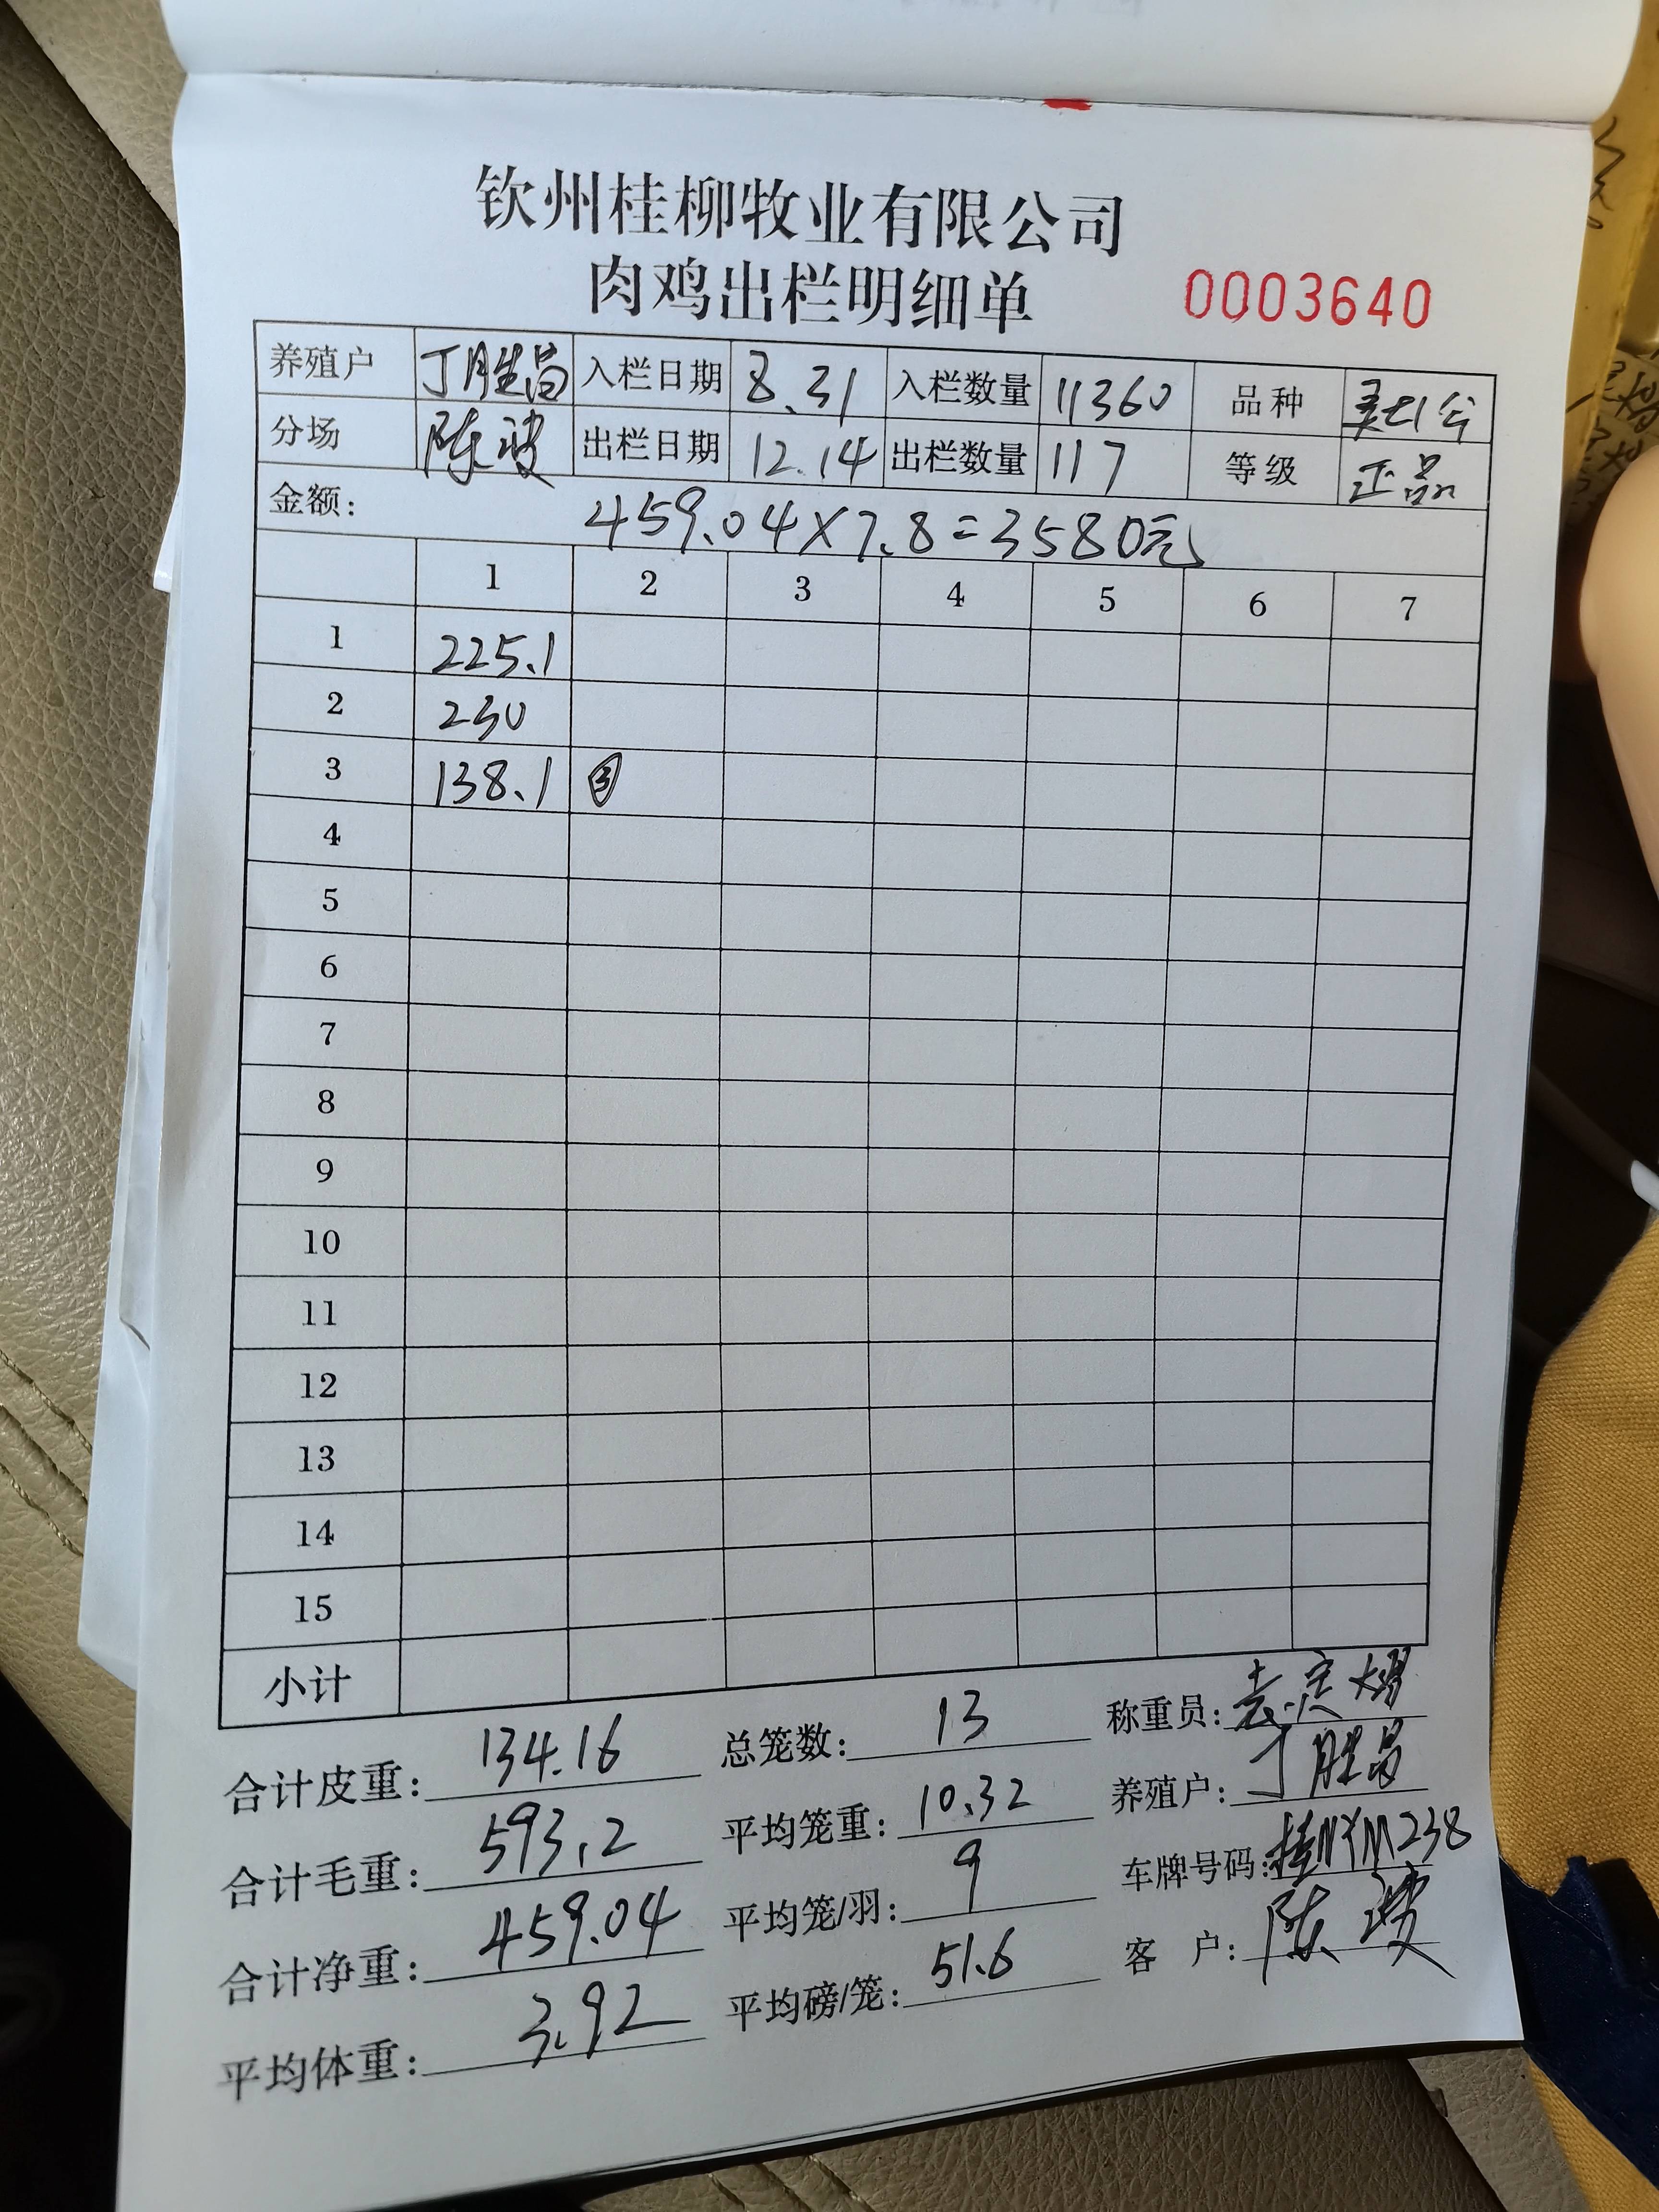 钦州桂柳牧业有限公司
肉鸡出栏明细单 0003640
养殖户 丁胜昌 入栏日期 8.31 入栏数量 11360 品种
分场 陈波 出栏日期 12.14 出栏数量 117 等级 正品
金额: 459.04×7.8=3580元
1 2 3 4 5 6 7
1 225.1
2 230
3 138.1 ③
4
5
6
7
8
9
10
11
12
13
14
15
小计
合计皮重: 134.16 总笼数: 13 称重员:
合计毛重: 593.2 平均笼重: 10.32 养殖户: 丁胜昌
合计净重: 459.04 平均笼/羽: 9 车牌号码: 桂NYM238
平均体重: 3.92 平均磅/笼: 51.6 客户: 陈波